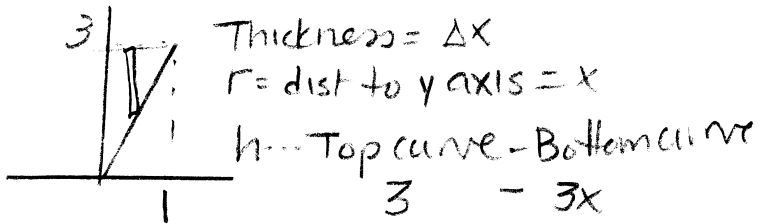 3
Thickness = Δx
r = dist to y axis = x
h... Top curve - Bottom curve
3 - 3x
1